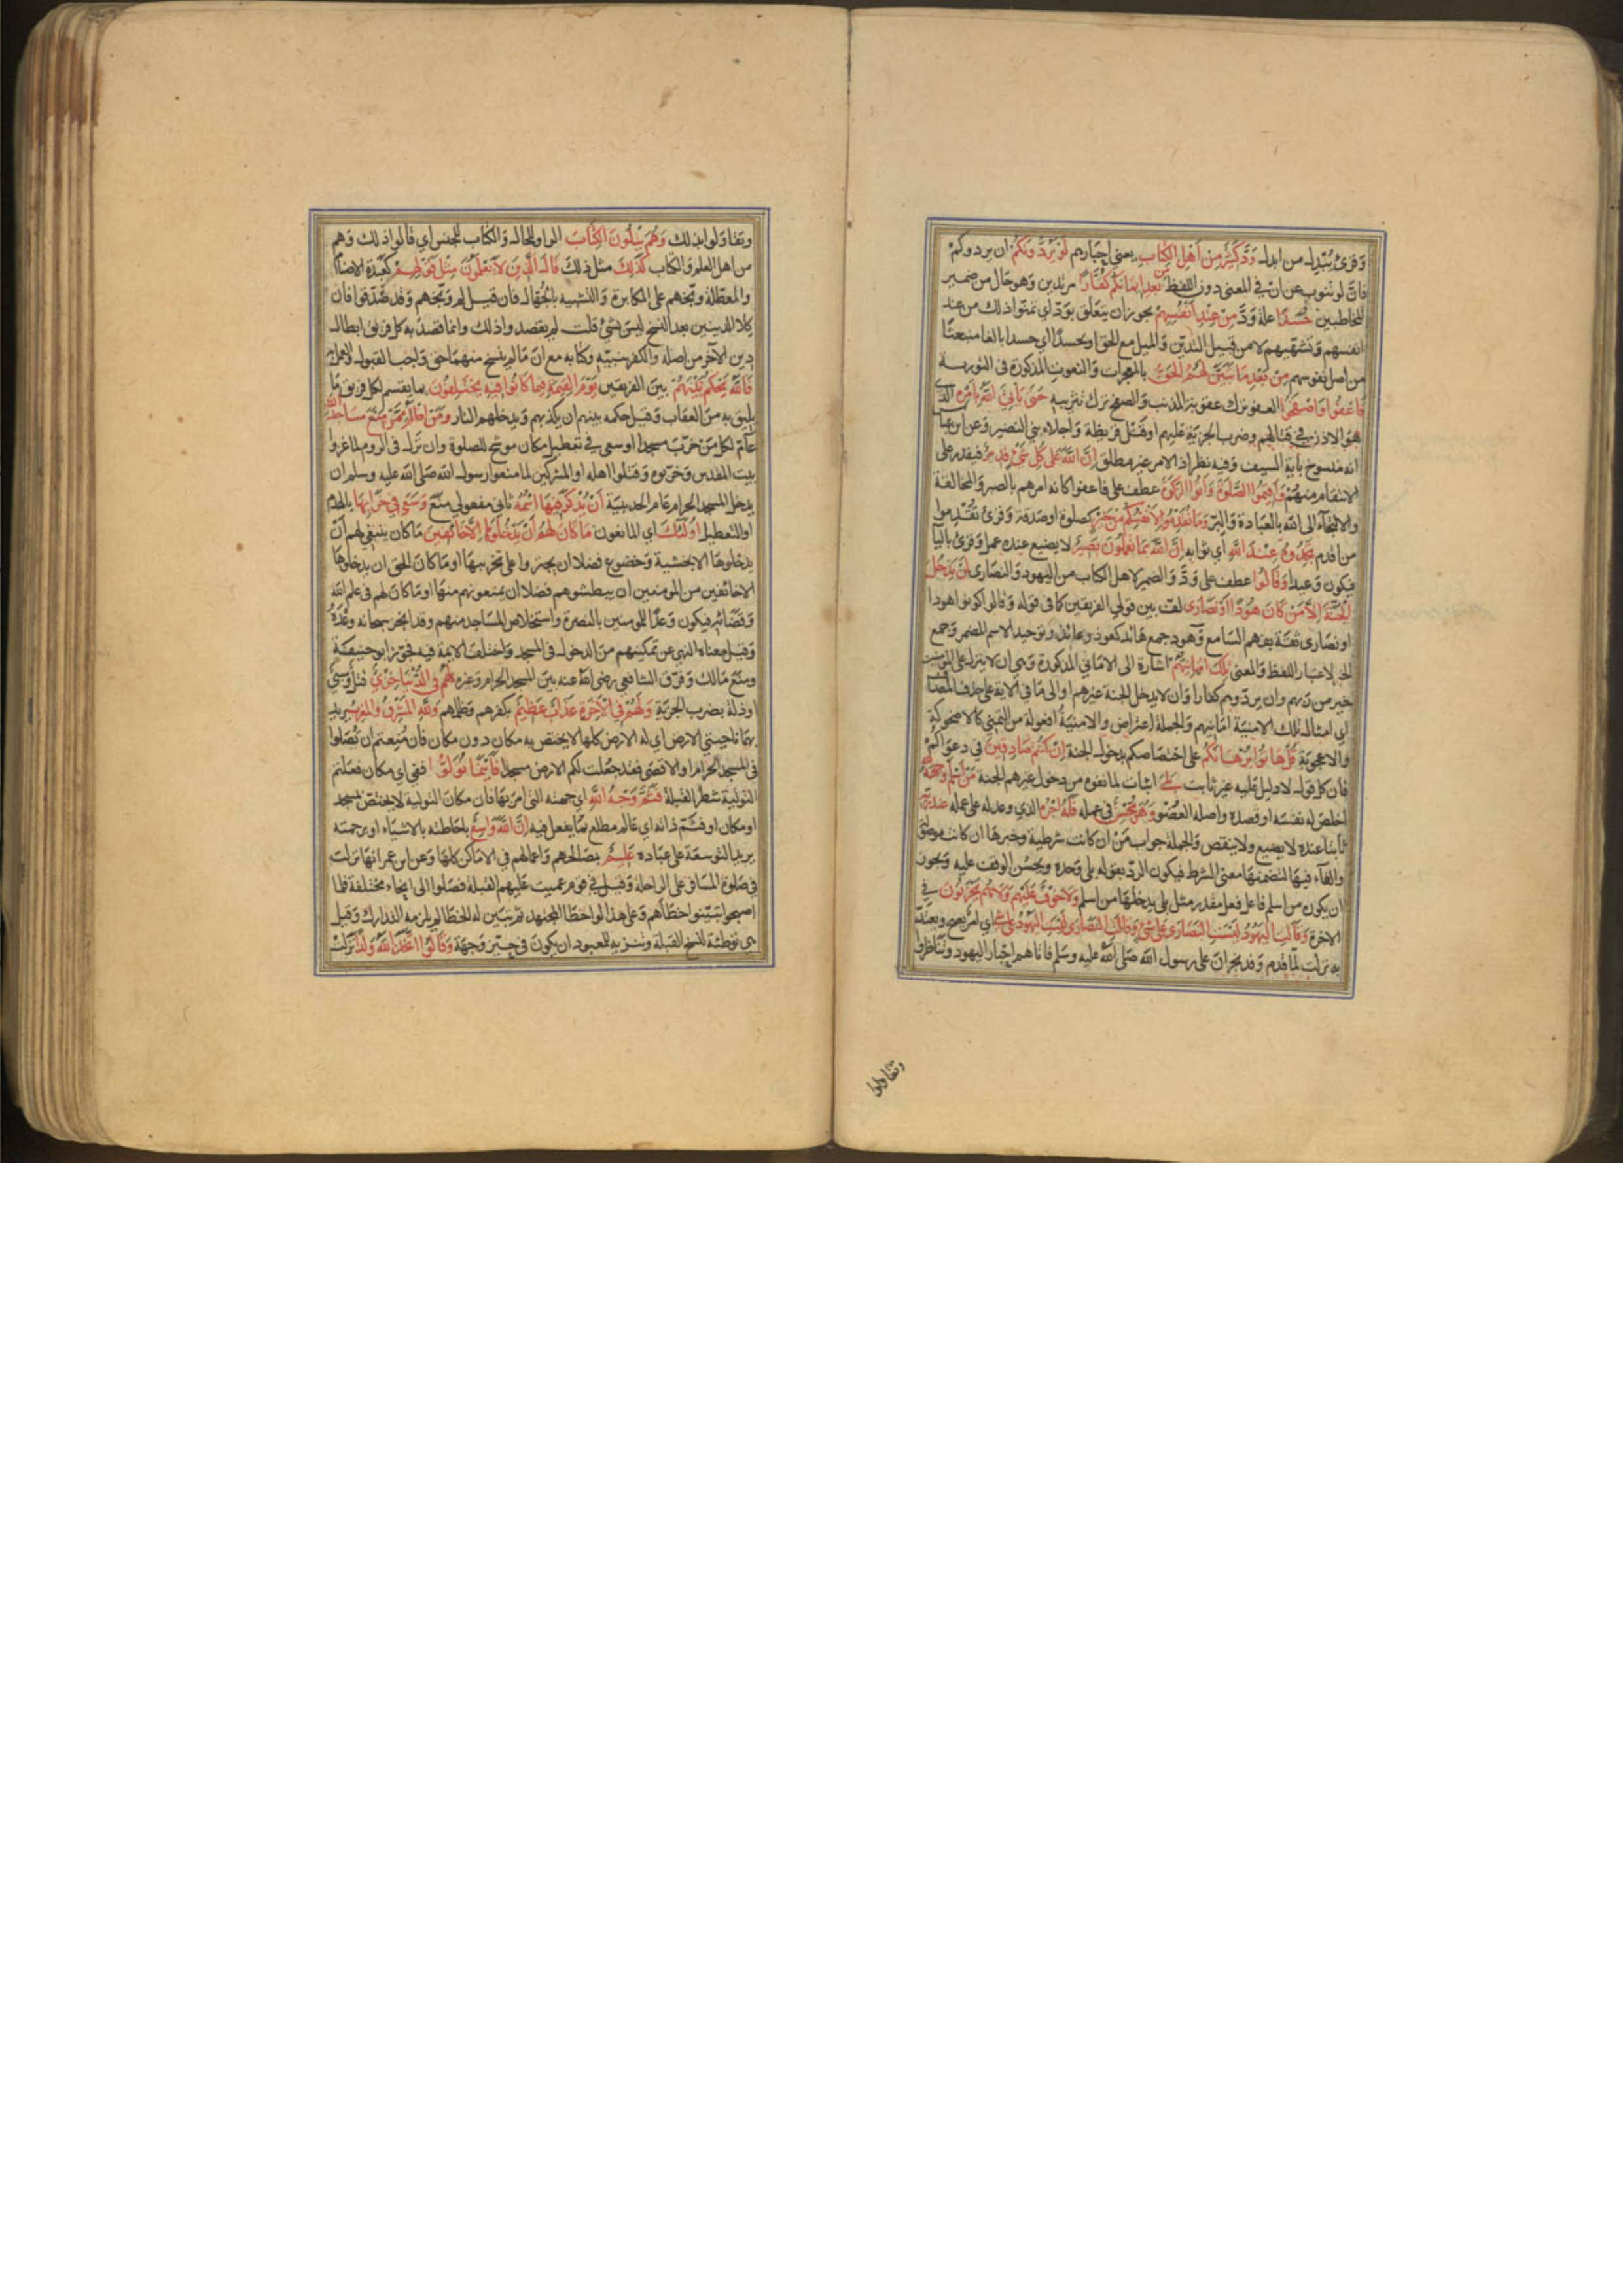 وقرئ يبدل من ابدل وَدَّ كَثِيرٌ مِنْ اَهْلِ الْكِتَابِ يعني احبارهم لَوْ يَرُدُّونَكُمْ ان يردوكم
فان لو تنوب عن ان في المعنى دون اللفظ مِنْ بَعْدِ اِيمَانِكُمْ كُفَّارًا مرتدين وهو حال من ضمير
المخاطبين حَسَدًا علة ودّ مِنْ عِنْدِ اَنْفُسِهِمْ يجوز ان يتعلق بودّ اي تمنوا ذلك من عند
انفسهم وتشهيهم لا من قبيل التدين والميل مع الحق او بحسدا اي حسدا بالغا منبعثا
من اصل نفوسهم مِنْ بَعْدِ مَا تَبَيَّنَ لَهُمُ الْحَقُّ بالمعجزات والنعوت المذكورة في التورية
فَاعْفُوا وَاصْفَحُوا العفو ترك عقوبة المذنب والصفح ترك تثريبه حَتَّى يَأْتِيَ اللّٰهُ بِاَمْرِهِ الذي
هو الاذن في قتالهم وضرب الجزية عليهم او قتل قريظة واجلاء بني النضير وعن ابن عباس
انه منسوخ بآية السيف وفيه نظر اذ الامر غير مطلق اِنَّ اللّٰهَ عَلَى كُلِّ شَيْءٍ قَدِيرٌ فيقدر على
الانتقام منهم وَاَقِيمُوا الصَّلٰوةَ وَآتُوا الزَّكٰوةَ عطف على فاعفوا كانه امرهم بالصبر والمخالفة
والالتجاء الى الله بالعبادة والبر وَمَا تُقَدِّمُوا لِاَنْفُسِكُمْ مِنْ خَيْرٍ كصلوة او صدقة وقرئ تقدموا
من اقدم تَجِدُوهُ عِنْدَ اللّٰهِ اي ثوابه اِنَّ اللّٰهَ بِمَا تَعْمَلُونَ بَصِيرٌ لا يضيع عنده عمل وقرئ بالياء
فيكون وعيدا وَقَالُوا عطف على ودّ والضمير لاهل الكتاب من اليهود والنصارى لَنْ يَدْخُلَ
الْجَنَّةَ اِلَّا مَنْ كَانَ هُودًا اَوْ نَصَارَى لف بين قولي الفريقين كما في قوله وقالوا كونوا هودا
او نصارى ثقة بفهم السامع وهود جمع هائد كعوذ وعائذ وتوحيد الاسم المضمر وجمع
الخبر لاعتبار اللفظ والمعنى تِلْكَ اَمَانِيُّهُمْ اشارة الى الاماني المذكورة وهي ان لا ينزل على المؤمنين
خير من ربهم وان يردوهم كفارا وان لا يدخل الجنة غيرهم او الى ما في الآية على حذف المضاف
اي امثال تلك الامنية امانيهم والجملة اعتراض والامنية افعولة من التمني كالاضحوكة
والاعجوبة قُلْ هَاتُوا بُرْهَانَكُمْ على اختصاصكم بدخول الجنة اِنْ كُنْتُمْ صَادِقِينَ في دعواكم
فان كل قول لا دليل عليه غير ثابت بَلَى اثبات لما نفوه من دخول غيرهم الجنة مَنْ اَسْلَمَ وَجْهَهُ لِلّٰهِ
اخلص له نفسه او قصده واصله العضو وَهُوَ مُحْسِنٌ في عمله فَلَهُ اَجْرُهُ الذي وعد له على عمله عِنْدَ رَبِّهِ
ثابتا عنده لا يضيع ولا ينقص والجملة جواب من ان كانت شرطية وخبرها ان كانت موصولة
والفاء فيها لتضمنها معنى الشرط فيكون الرد بقوله بلى وحده ويحسن الوقف عليه ويجوز
ان يكون من اسلم فاعل فعل مقدر مثل بلى يدخلها من اسلم وَلَا خَوْفٌ عَلَيْهِمْ وَلَا هُمْ يَحْزَنُونَ في
الآخرة وَقَالَتِ الْيَهُودُ لَيْسَتِ النَّصَارَى عَلَى شَيْءٍ وَقَالَتِ النَّصَارَى لَيْسَتِ الْيَهُودُ عَلَى شَيْءٍ اي امر يصح ويعتد
به نزلت لما قدم وفد نجران على رسول الله صلى الله عليه وسلم فاتاهم احبار اليهود وتناظروا
وتقاولوا
وتقاولوا بذلك وَهُمْ يَتْلُونَ الْكِتَابَ الواو للحال والكتاب للجنس اي قالوا ذلك وهم
من اهل العلم والكتاب كَذٰلِكَ مثل ذلك قَالَ الَّذِينَ لَا يَعْلَمُونَ مِثْلَ قَوْلِهِمْ كعبدة الاصنام
والمعطلة وبخهم على المكابرة والتشبه بالجهال فان قيل لم وبخهم وقد صدقوا فان
كلا الدينين بعد النسخ ليس بشيء قلت لم يقصدوا ذلك وانما قصد به كل فريق ابطال
دين الآخر من اصله والكفر بنبيه وكتابه مع ان ما لم ينسخ منهما حق واجب القبول والعمل به
فَاللّٰهُ يَحْكُمُ بَيْنَهُمْ بين الفريقين يَوْمَ الْقِيٰمَةِ فِيمَا كَانُوا فِيهِ يَخْتَلِفُونَ بما يقسم لكل فريق ما
يليق به من العقاب وقيل حكمه بينهم ان يكذبهم ويدخلهم النار وَمَنْ اَظْلَمُ مِمَّنْ مَنَعَ مَسَاجِدَ اللّٰهِ
عام لكل من خرب مسجدا او سعى في تعطيل مكان مرشح للصلوة وان نزل في الروم لما غزوا
بيت المقدس وخربوه وقتلوا اهله او المشركين لما منعوا رسول الله صلى الله عليه وسلم ان
يدخل المسجد الحرام عام الحديبية اَنْ يُذْكَرَ فِيهَا اسْمُهُ ثاني مفعولي منع وَسَعَى فِي خَرَابِهَا بالهدم
او التعطيل اُولٰئِكَ اي المانعون مَا كَانَ لَهُمْ اَنْ يَدْخُلُوهَا اِلَّا خَائِفِينَ ما كان ينبغي لهم ان
يدخلوها الا بخشية وخضوع فضلا ان يجترءوا على تخريبها او ما كان الحق ان يدخلوها
الا خائفين من المومنين ان يبطشوهم فضلا ان يمنعوهم منها او ما كان لهم في علم الله
وقضائه فيكون وعدا للمومنين بالنصرة واستخلاص المساجد منهم وقد انجز سبحانه وعده
وقيل معناه النهي عن تمكينهم من الدخول في المسجد واختلف الايمة فيه فجوز ابو حنيفة
ومنع مالك وفرق الشافعي رضي الله عنه بين المسجد الحرام وغيره لَهُمْ فِي الدُّنْيَا خِزْيٌ قتل وسبي
او ذلة بضرب الجزية وَلَهُمْ فِي الْآخِرَةِ عَذَابٌ عَظِيمٌ بكفرهم وظلمهم وَلِلّٰهِ الْمَشْرِقُ وَالْمَغْرِبُ يريد
بهما ناحيتي الارض اي له الارض كلها لا يختص به مكان دون مكان فان منعتم ان تصلوا
في المسجد الحرام او الاقصى فقد جعلت لكم الارض مسجدا فَاَيْنَمَا تُوَلُّوا ففي اي مكان فعلتم
التولية شطر القبلة فَثَمَّ وَجْهُ اللّٰهِ اي جهته التي امر بها فان مكان التولية لا يختص بمسجد
او مكان او فثم ذاته اي عالم مطلع بما يفعل فيه اِنَّ اللّٰهَ وَاسِعٌ باحاطته بالاشياء او برحمته
يريد التوسعة على عباده عَلِيمٌ بمصالحهم واعمالهم في الاماكن كلها وعن ابن عمر انها نزلت
في صلوة المسافر على الراحلة وقيل في قوم عميت عليهم القبلة فصلوا الى انحاء مختلفة فلما
اصبحوا تبينوا خطأهم وعلى هذا لو اخطأ المجتهد ثم تبين له الخطأ لم يلزمه التدارك وقيل
هي توطئة لنسخ القبلة وتنزيه للمعبود ان يكون في حيز وجهة وَقَالُوا اتَّخَذَ اللّٰهُ وَلَدًا نزلت